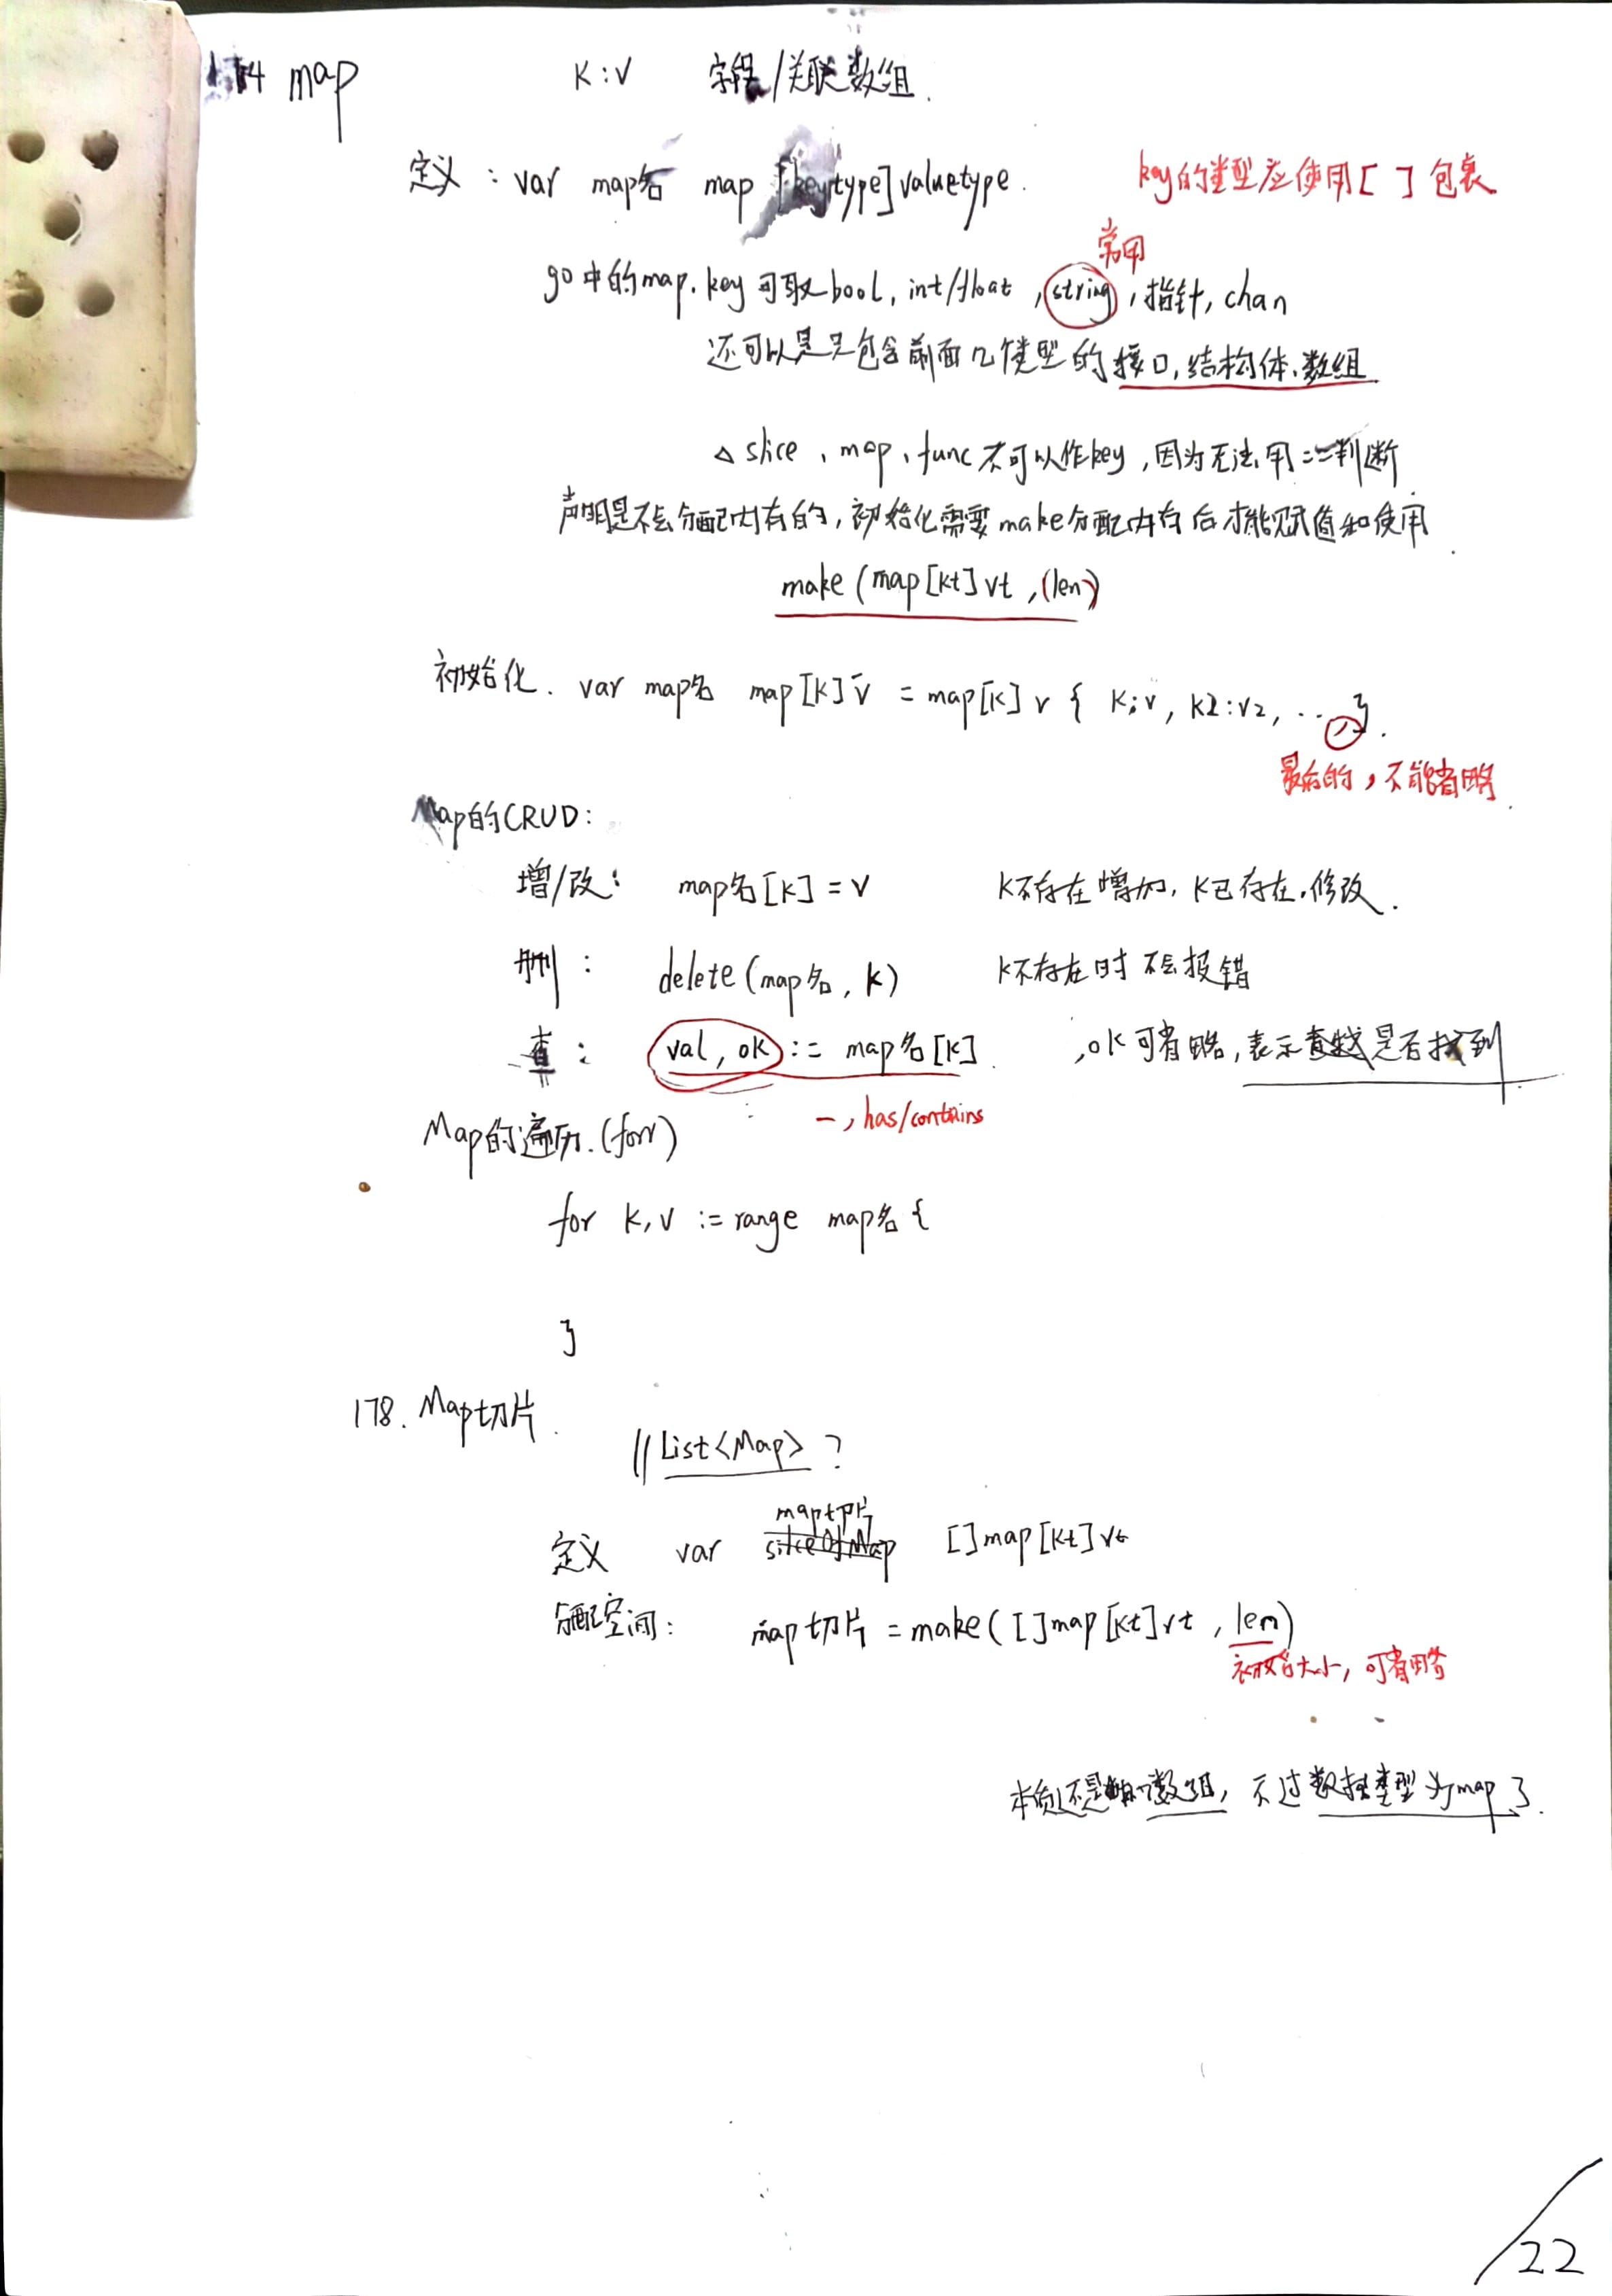 174 map K:V 字段/关联数组.
定义：var map名 map [keytype]valuetype. key的类型应使用[ ]包裹
常用
go中的map.key可取bool, int/float, string, 指针, chan
还可以是只包含前面几个类型的接口,结构体、数组
△ slice、map、func不可以作key,因为无法用==判断
声明是不会分配内存的,初始化需要make分配内存后才能赋值和使用.
make(map[kt]vt,(len)
初始化. var map名 map[K]V = map[K]v { K:v, K2:v2, ... , }.
最后的,不能省略.
Map的CRUD:
增/改: map名[K]=V K不存在增加, K已存在.修改.
删: delete(map名, k) K不存在时不会报错
查: val, ok := map名[K]. ,ok可省略,表示查找是否找到
_, has/contains
Map的遍历.(forr)
for k,v := range map名{
}
178. Map切片.
//List<Map> ?
map切片
定义 var sliceOfMap []map[Kt]vt
分配空间: map切片 = make([]map[Kt]vt, len)
初始大小, 可省略
本质还是数组, 不过数据类型为map了.
22